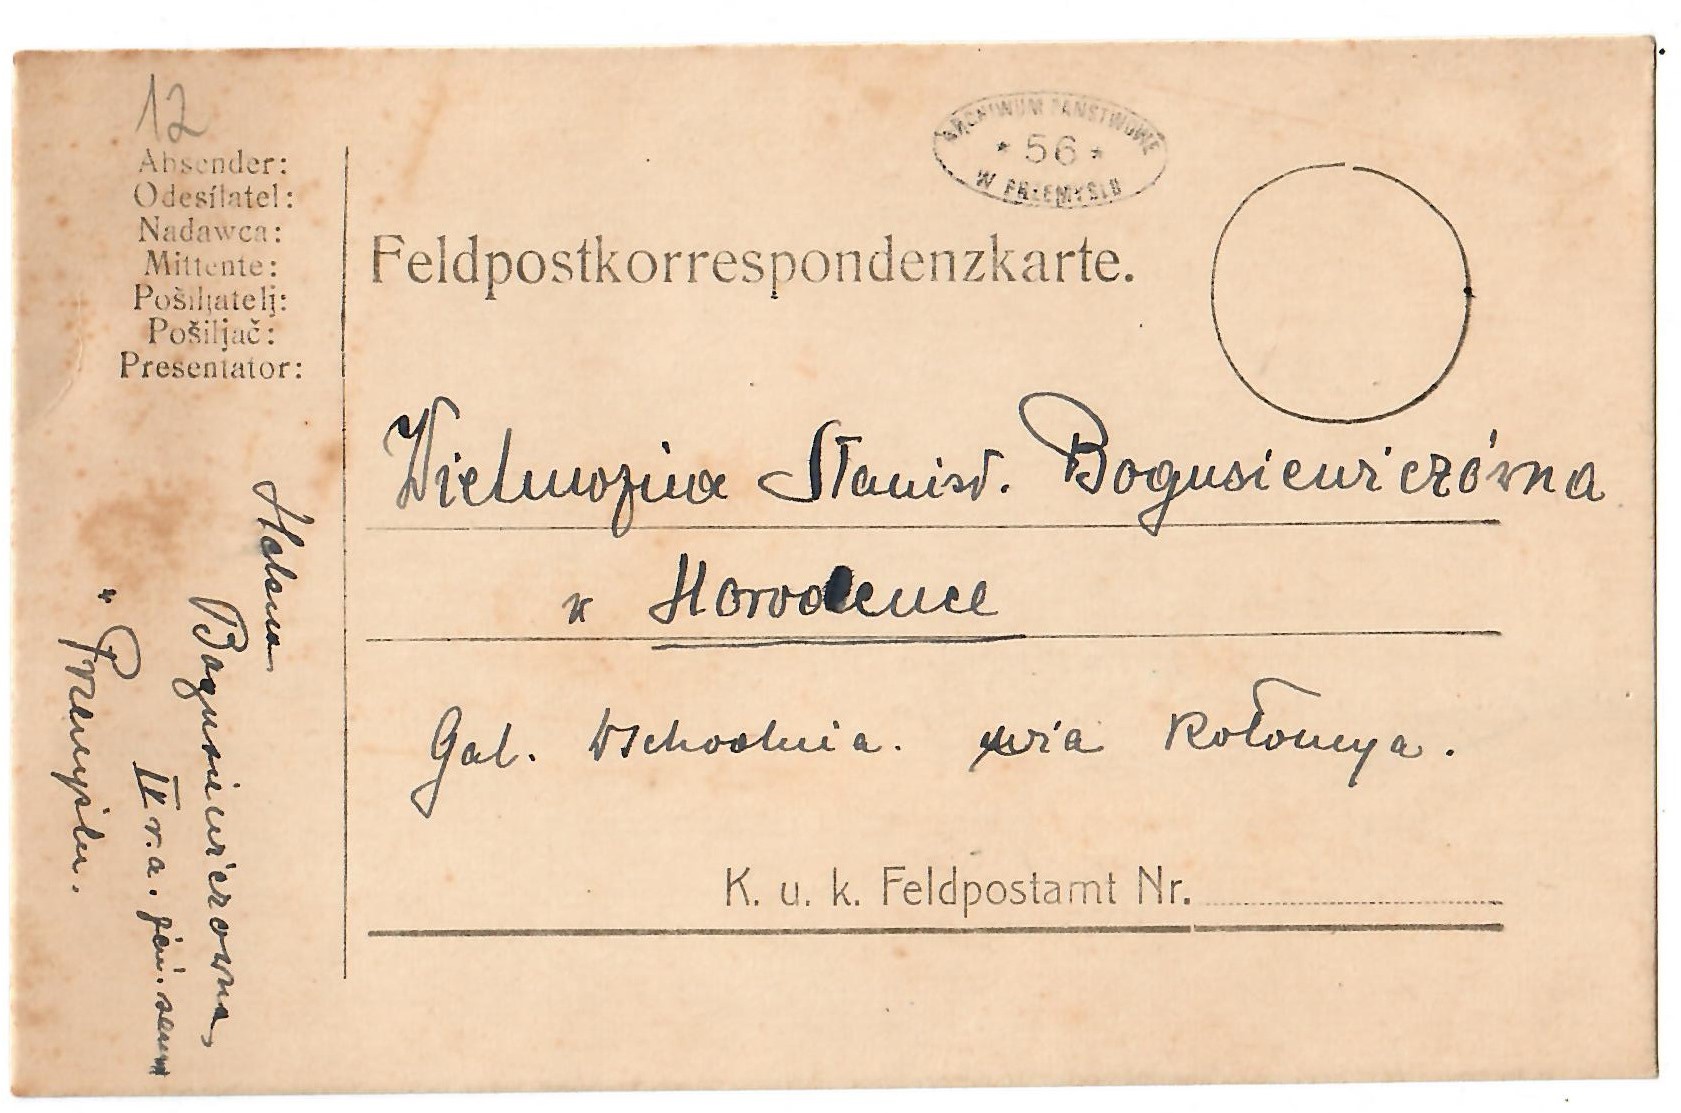 12
Absender:
Odesílatel:
Nadawca:
Mittente:
Pošiljatelj:
Pošiljač:
Presentator:
ARCHIWUM PAŃSTWOWE
* 56 *
W PRZEMYŚLU
Feldpostkorrespondenzkarte.
Wielmożna Stanisł. Bogusiewiczówna
w Horodence
Gal. Wschodnia. via Kołomya.
K. u. k. Feldpostamt Nr.
Bogusiewiczówna
IV r. a. żeń. semin
w Przemyślu.